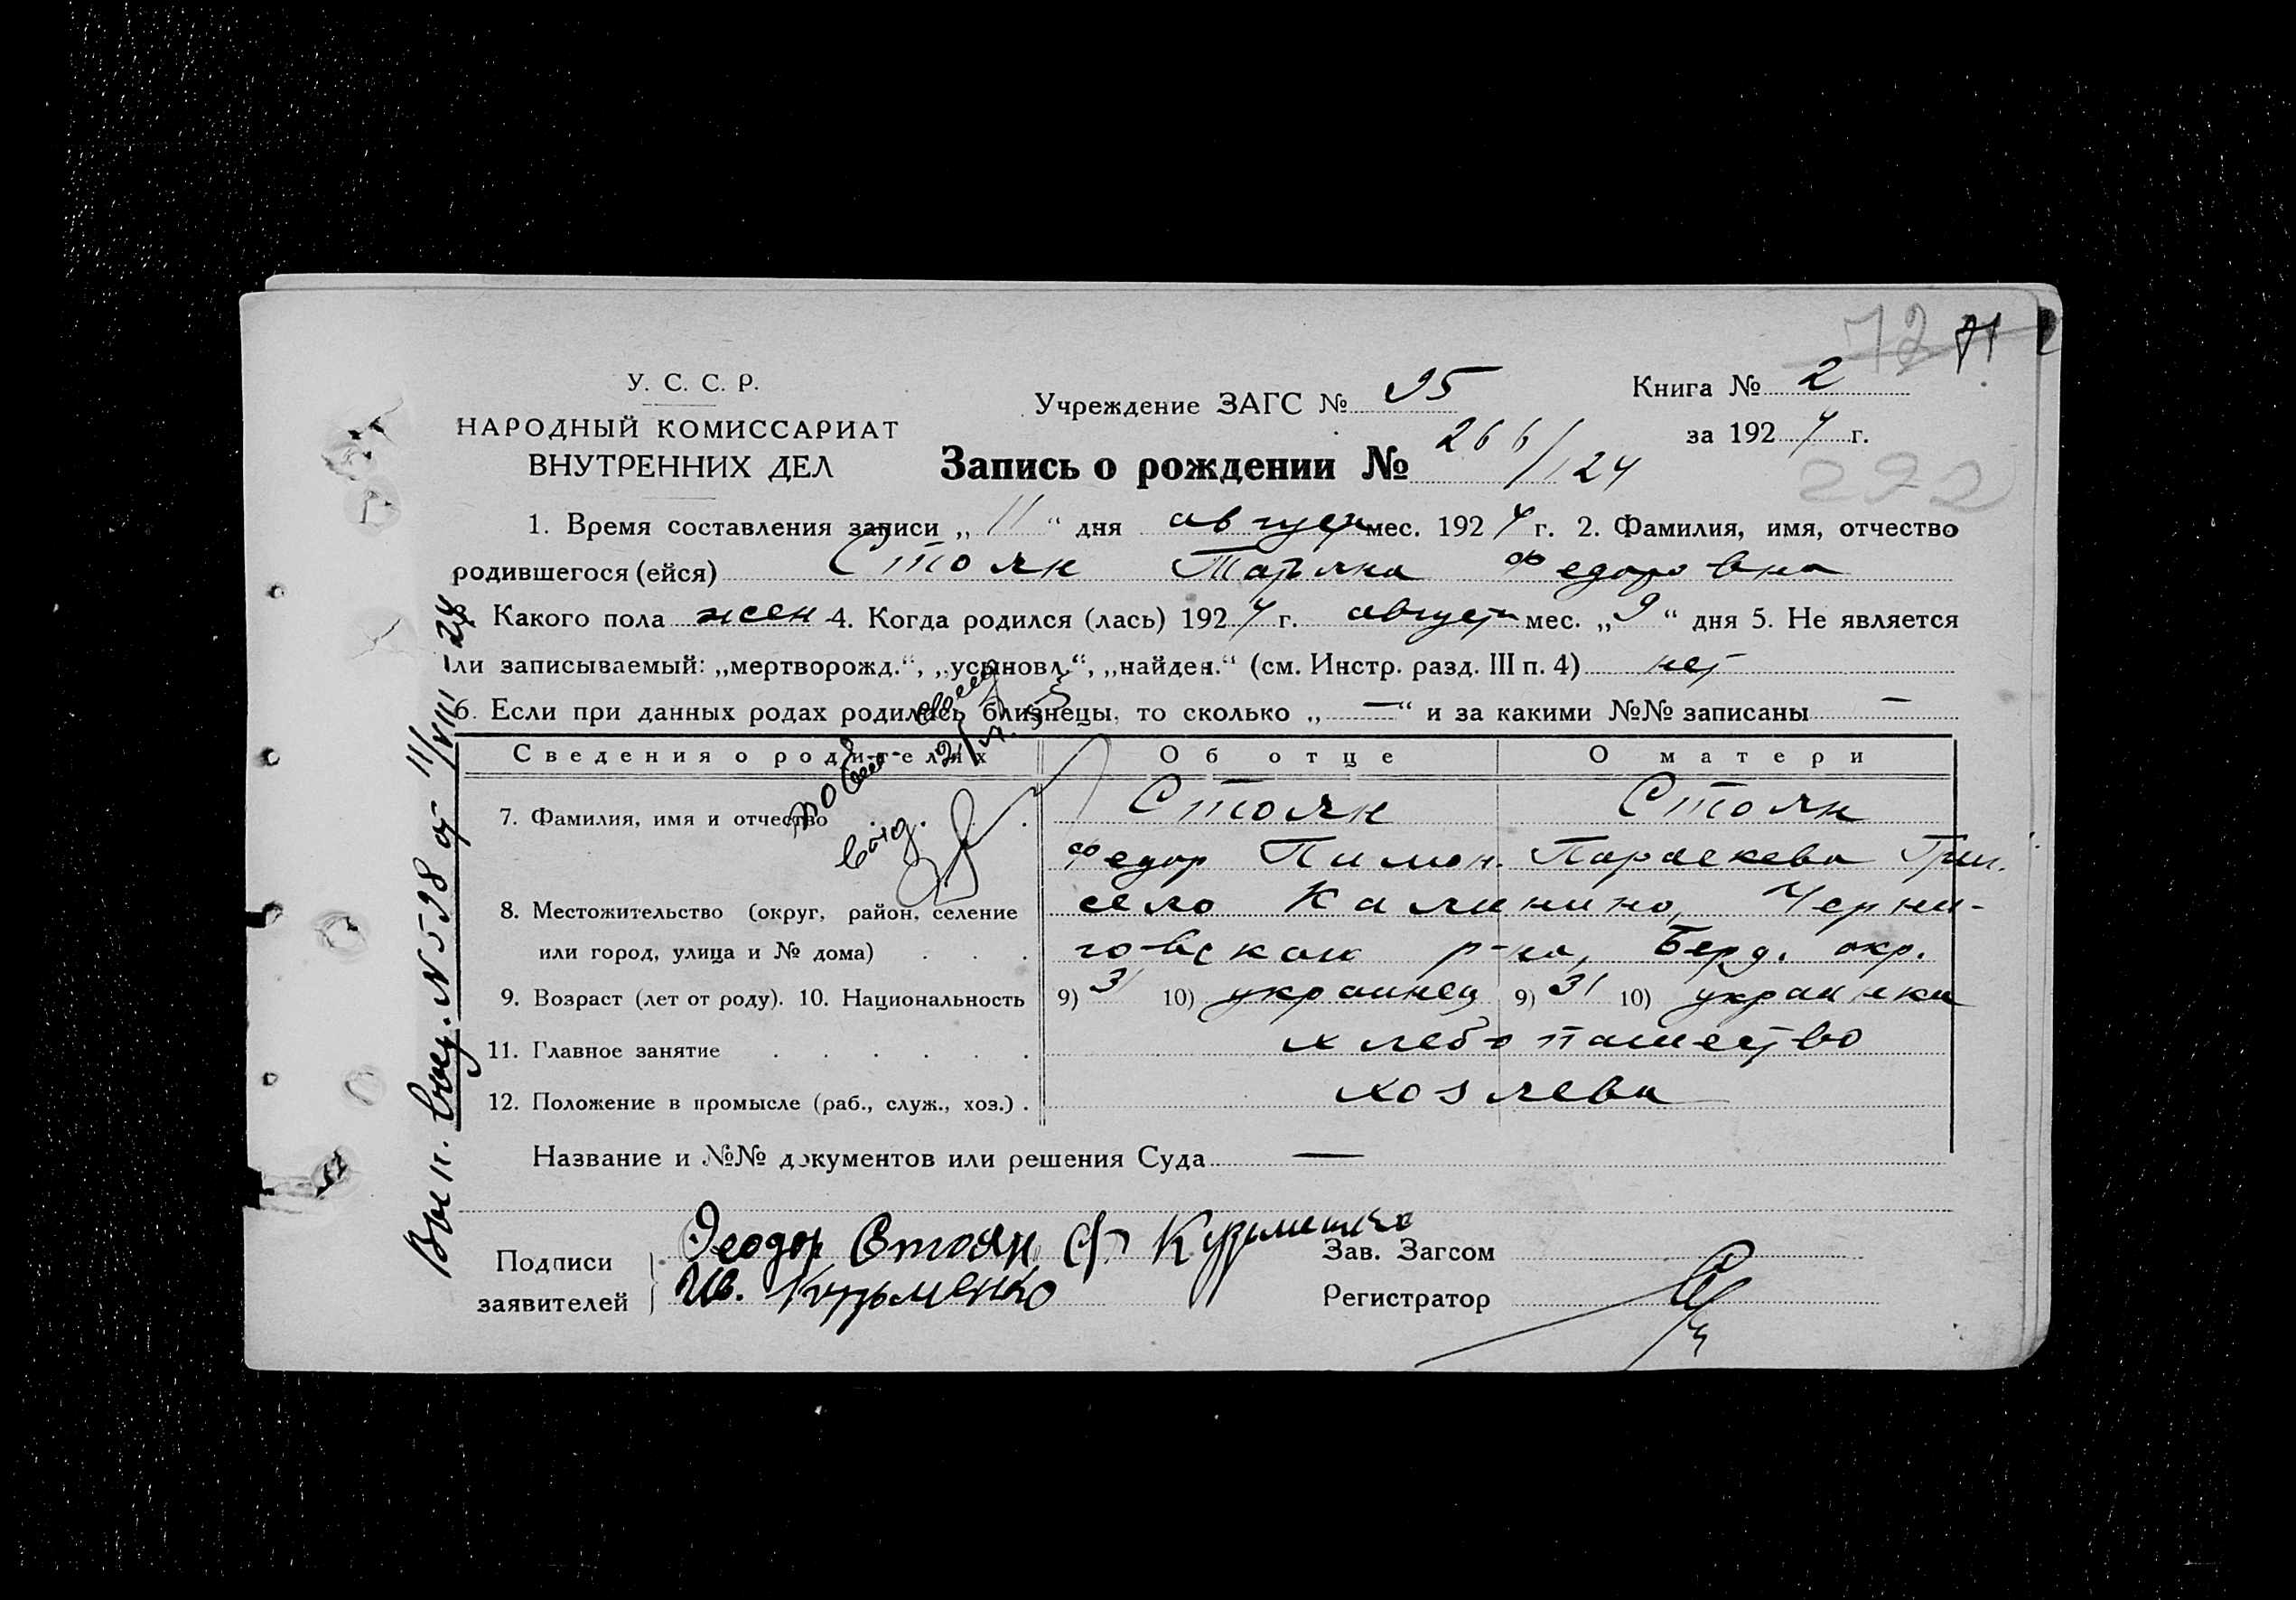 72 71
У. С. С. Р.
НАРОДНЫЙ КОМИССАРИАТ
ВНУТРЕННИХ ДЕЛ
Учреждение ЗАГС № 95
Книга № 2
за 1924 г.
Запись о рождении № 266/124
292
1. Время составления записи „11“ дня август мес. 1924 г. 2. Фамилия, имя, отчество
родившегося (ейся) Стоян Татьяна Федоровна
3. Какого пола жен 4. Когда родился (лась) 1924 г. август мес. „9“ дня 5. Не является
ли записываемый: „мертворожд.“, „усыновл.“, „найден.“ (см. Инстр. разд. III п. 4) нет
6. Если при данных родах родились близнецы, то сколько „—“ и за какими №№ записаны —
Сведения о родителях Об отце О матери
7. Фамилия, имя и отчество Стоян Стоян
Федор Пимон. Параскева Григ.
8. Местожительство (округ, район, селение село Калинино, Черни-
или город, улица и № дома) говском р-на, Берд. окр.
9. Возраст (лет от роду). 10. Национальность 9) 31 10) украинец 9) 31 10) украинка
11. Главное занятие хлебопашество
12. Положение в промысле (раб., служ., хоз.) хозяева
Название и №№ документов или решения Суда —
Подписи
заявителей
Феодор Стоян Ф Кузьменко
Ив. Кузьменко
Зав. Загсом
Регистратор
№ 598 от 11/VIII-24